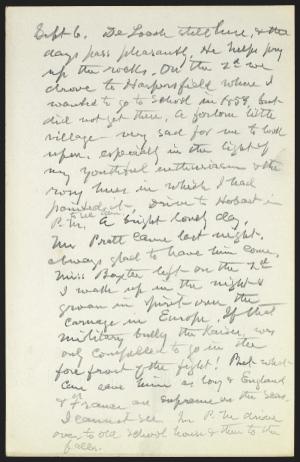 Sept 6. De Loach still here, & the
days pass pleasantly. He helps pry
up the rocks. On the 2d we
drove to Harpersfield where I
wanted to go to School in 1854, but
did not get there. A forlorn little
village - very sad for me to look
upon, especially in the light of
my youthful enthusiasm & the
rosy hues in which I had
painted it. Drive to Hobart in
P.M. A bright lovely day.
Mr Pratt came last night.
always glad to have him come.
Miss Baxter left on the 2d
I wake up in the night &
groan in spirit over the
carnage in Europe. If that
military bully the Kaiser, was
only compelled to go in the
fore front of the fight! But what
can save him as long as England
& France are supreme on the seas.
I cannot see. In P.M. drive
over to old School house & then to the
falls.